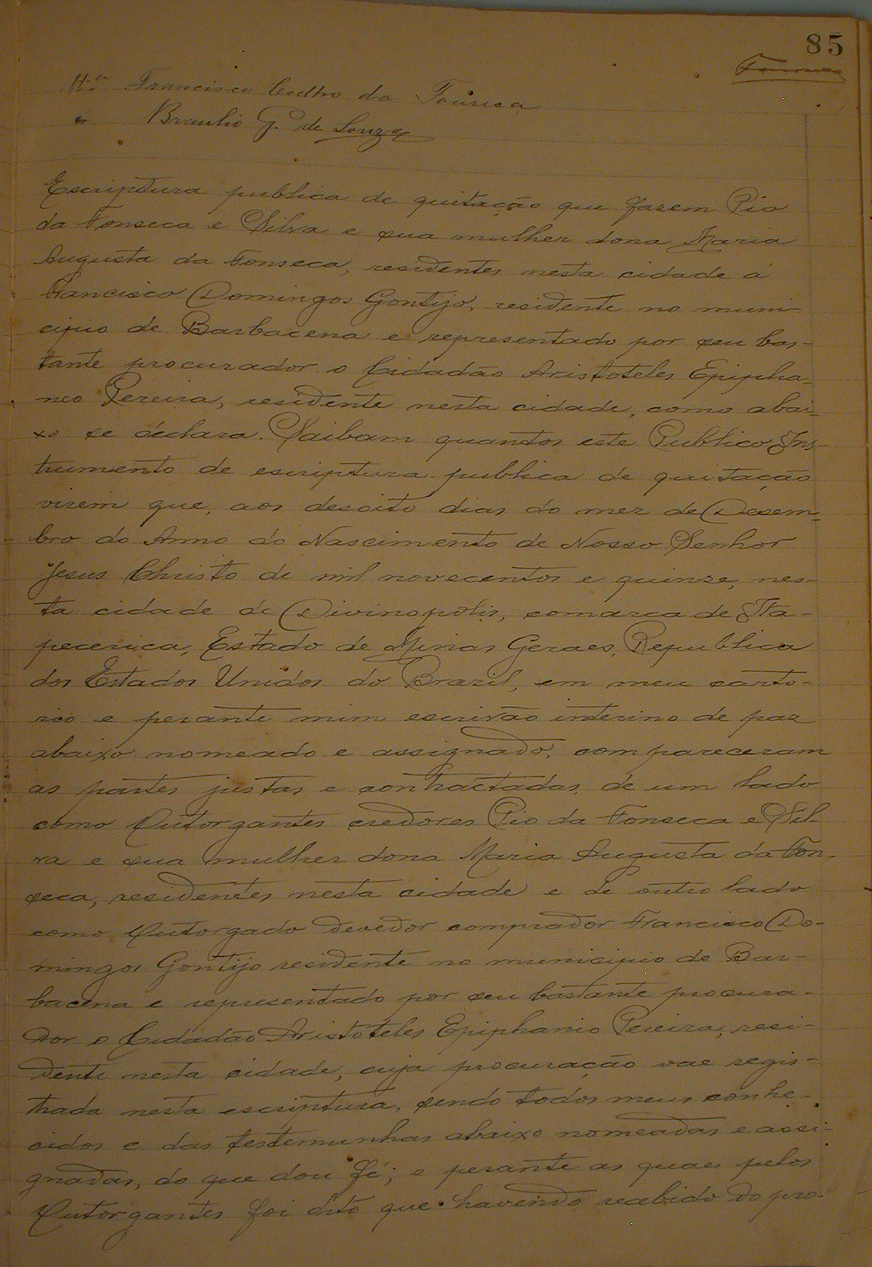 85
Fonseca
Ha Francisco Coelho da Fonseca
" Braulio G.º de Souza
Escriptura publica de quitação que fazem Pio
da Fonseca e Silva e sua mulher dona Maria
Augusta da Fonseca, residentes nesta cidade á
Francisco Domingos Gontijo, residente no muni-
cipio de Barbacena e representado por seu bas-
tante procurador o Cidadão Aristoteles Epipha-
neo Pereira, residente nesta cidade, como abai-
xo se declara. Saibam quantos este Publico Ins-
trumento de escriptura publica de quitação
virem que, aos desoito dias do mez de Desem-
bro do Anno do Nascimento de Nosso Senhor
Jesus Christo de mil novecentos e quinze, nes-
ta cidade de Divinopolis, comarca de Ita-
pecerica, Estado de Minas Geraes, Republica
dos Estados Unidos do Brazil, em meu carto-
rio e perante mim escrivão interino de paz
abaixo nomeado e assignado, compareceram
as partes justas e contractadas, de um lado
como Outorgantes credores Pio da Fonseca e Sil-
va e sua mulher dona Maria Augusta da Fon-
seca, residentes nesta cidade e de outro lado
como Outorgado devedor comprador Francisco Do-
mingos Gontijo residente no municipio de Bar-
bacena e representado por seu bastante procura-
dor o Cidadão Aristoteles Epiphanio Pereira, resi-
dente nesta cidade, cuja procuração vae regis-
trada nesta escriptura, sendo todos meus conhe-
cidos e das testemunhas abaixo nomeadas e assi-
gnadas, do que dou fé; e perante as quaes pelos
Outorgantes foi dito que havendo recebido do pro-